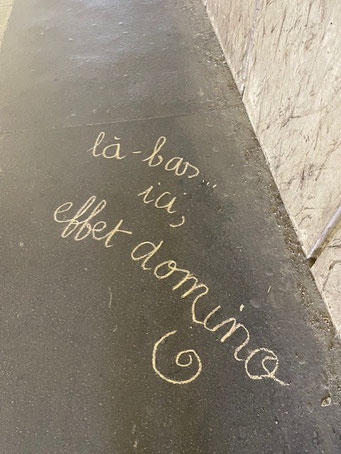 là-bas...
ici,
effet domino